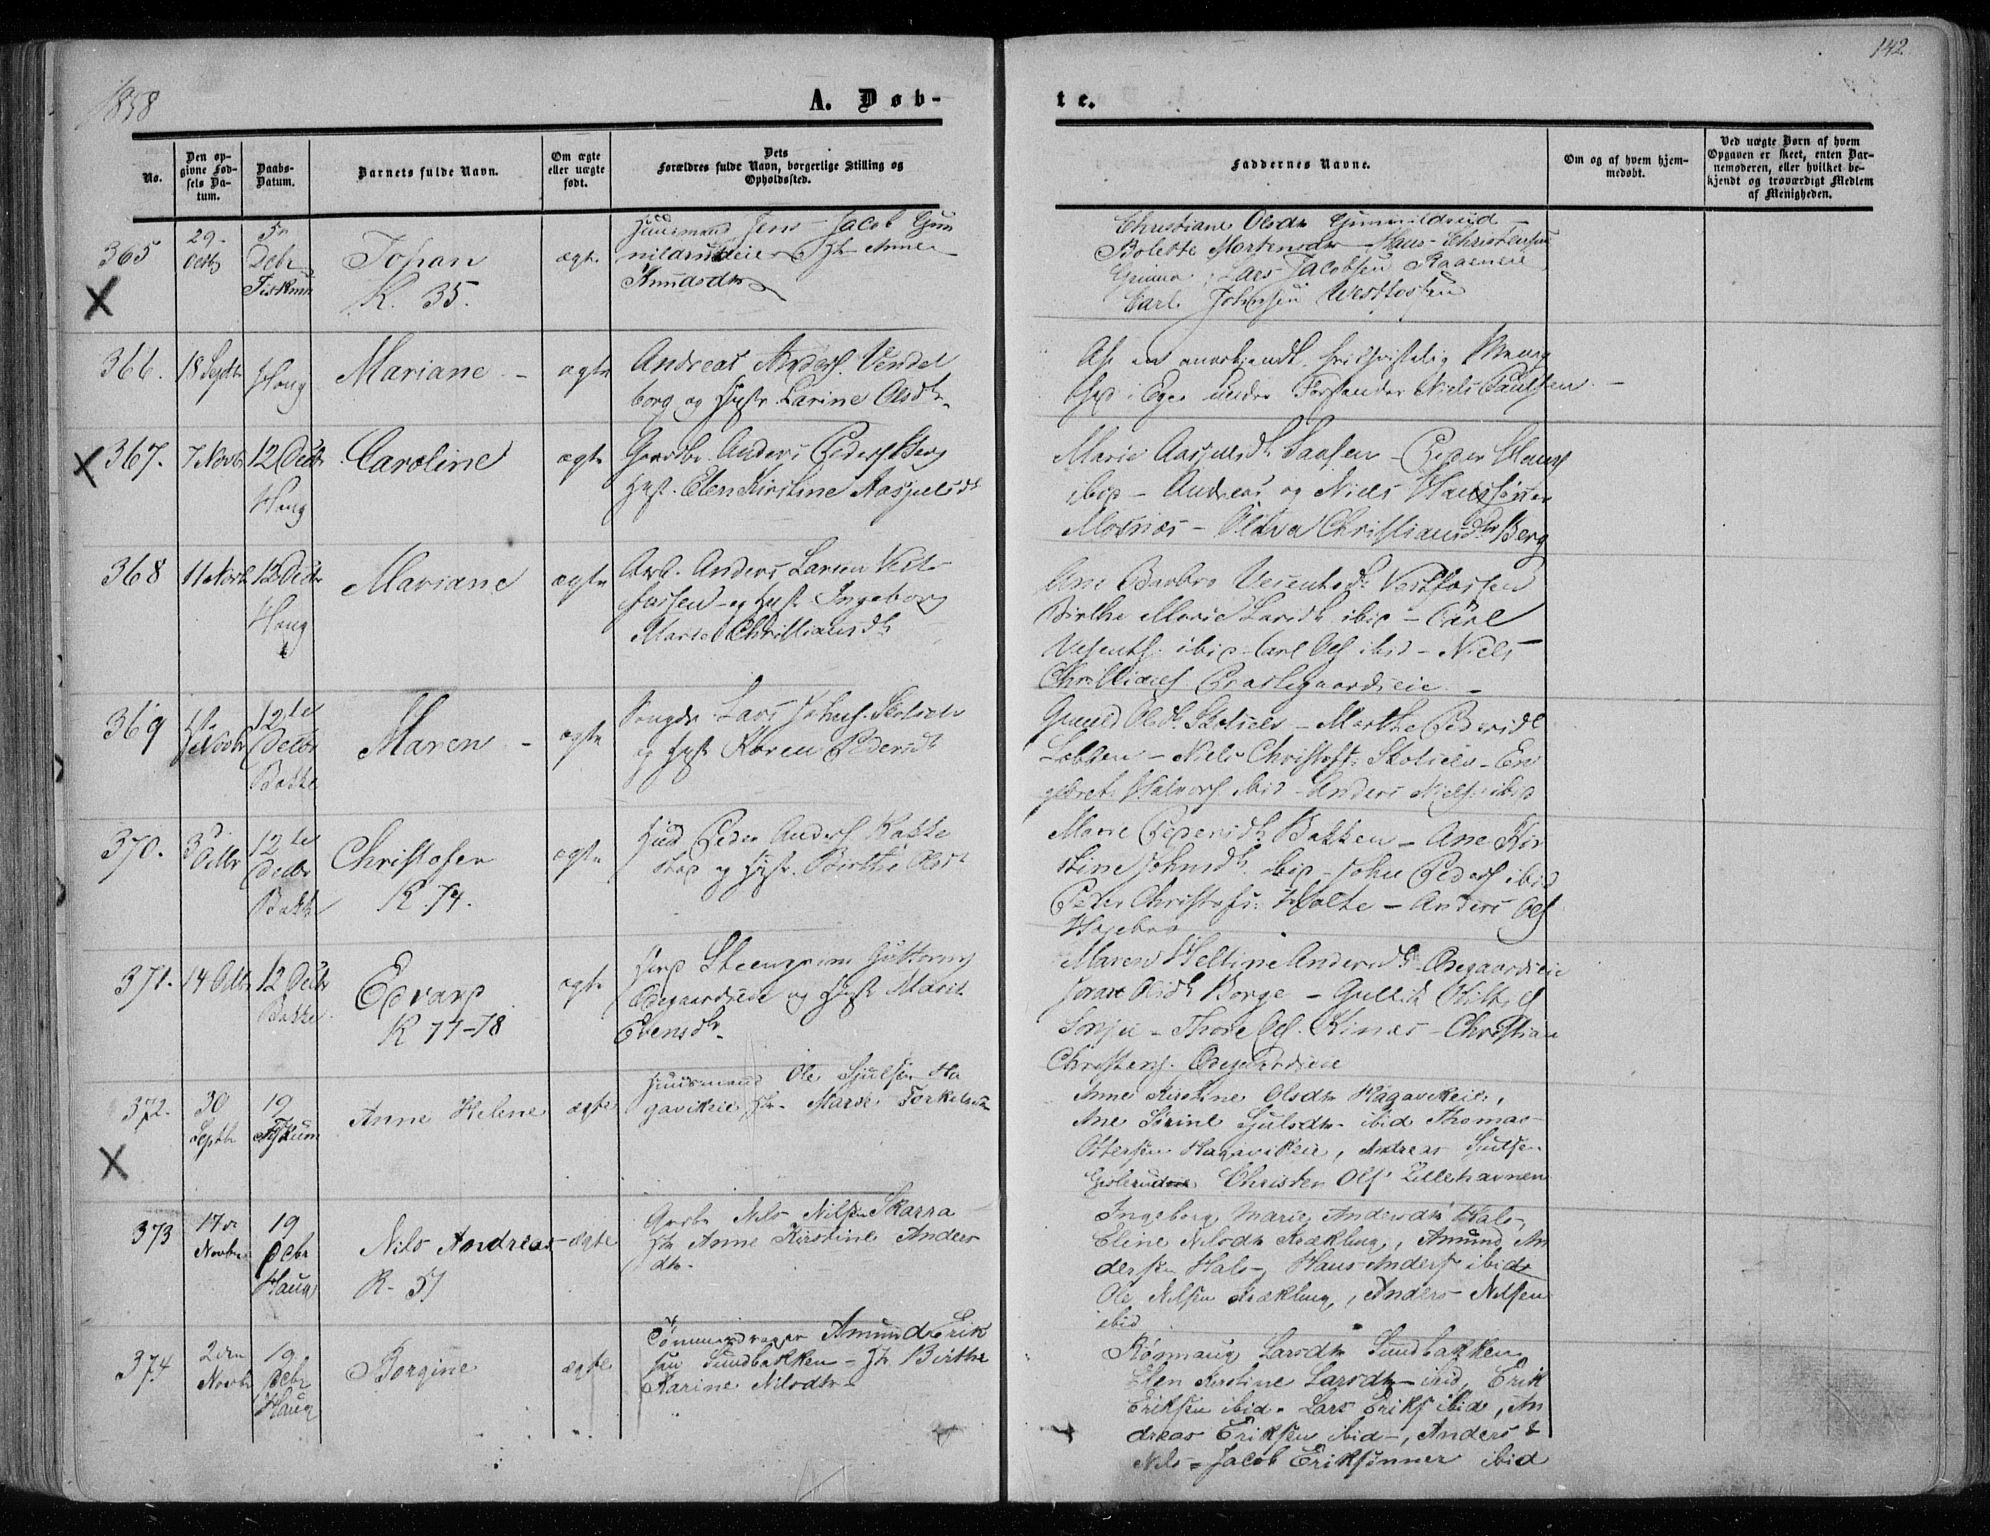 1858
A. Døb-
te.
142
No.
Den op-
givne Fød-
sels Da-
tum.
Daabs-
Datum.
Barnets fulde Navn.
Om ægte
eller uægte
født.
Dets
Forældres fulde Navn, borgerlige Stilling og
Opholdssted.
Faddernes Navne.
Om og af hvem hjem-
medøbt.
Ved uægte Børn af hvem
Opgaven er skeet, enten Bar-
nemoderen, eller hvilket be-
kjendt og troværdigt Medlem
af Menigheden.
365
29
Octb
5te
Debr
Fiskum
Johan
K. 35.
ægte
Huusmand Jens Jacob Gun
nildrudeie - H. Anne
Knudsdtr
Christiane Olsdtr Gunnildrud
Bolette Mortensdtr - Hans Christensen
Lars Jacobsen
Carl Johnsen Westfossen
366.
18 Septbr
Haug
Mariane -
ægte
Andreas Anders. Vendel
borg og Hustr. Larine Olsdtr.
Af en anerkjendt
i Eger under Forstander Niels Paulsen
367.
7 Novbr
12 Decbr
Haug
Caroline
ægte
Gaardbr. Anders Peders. Berg
Hust. Elen Kirstine Aasjulsdtr
Marie Aasjulsdtr - Peder
ibid - Andreas og Niels
- Oldva Christiansdtr Berg
368
11 Novbr
12 Decbr
Haug
Mariane
ægte
Arb. Anders Larsen Vest
fossen og Hustr. Ingeborg
Marie Christiansdtr
Ane Barbro Vestfossen
Birthe Marie Larsdtr ibid - Carl
ibid - Carl Ols. ibid - Niels
Christians.
369
Novbr
12te
Decbr
Bakke
Maren -
ægte
Lars Johns.
og Hustr. Karen Pedersdtr
Gunild Olsdtr - Marthe Pedersdtr
- Niels Christoff. - En
gebret Halvors. ibid - Anders Niels. ibid
370.
3 Octbr
12te
Decbr
Bakke
Christofer
K 74.
ægte
Huusmd Peder Anders. Bakke
og Hustr. Birthe Olsdtr
Marie Pedersdtr Bakken - Ane Kir
stine Johnsdtr ibid - John Peders. ibid
Peder Christofs. Holte - Anders Ols.
371.
14 Octbr
12 Decbr
Bakke
Edvard
K 77-78
ægte
Huusmd Steengrim Guttorms.
Ødegaardseie og Hustr. Marit
Ebensdtr.
Maren Heltine Andersdtr Ødegaardseie
Olsdtr Borge - Gullik Kittils.
- Thore Ols. - Christian
Christens. Ødegaardseie
372.
30
Septbr
19
Fiskum
Anne Helene
ægte
Huusmand Ole Sjulsen Ha
gavikeie, H. Marie Torkelsdtr
Anne Kirstine Olsdtr Hagavikeie,
Ane Sirine Sjulsdtr ibid Thomas
Ottersen Hagavikeie, Andreas Sjulsen
Christen Ols. Lillehavnen
373
17de
Novbr
19
Debr
Haug
Nils Andreas
K. 51
ægte
Gaardbr Nils Nilsen Skarra
H. Anne Kirstine Anders
dtr.
Ingeborg Marie Andersdtr Hals,
Eline Nilsdtr Krækling, Amund An
dersen Hals, Hans Anders. ibid
Ole Nilsen Krækling, Anders Nilsen
ibid
374
2den
Novbr
19
Debr
Haug
Borgine
ægte
Tømmerdrager Amund Erik
sen Sundbakken - H. Birthe
Karine Nilsdtr
Rønnaug Larsdtr Sundbakken
Elen Kirstine Larsdtr ibid, Erik
Eriksen ibid - Lars Eriks. ibid, An
dreas Eriksen ibid -, Anders &
Nils - Jacob Eriksønner ibid